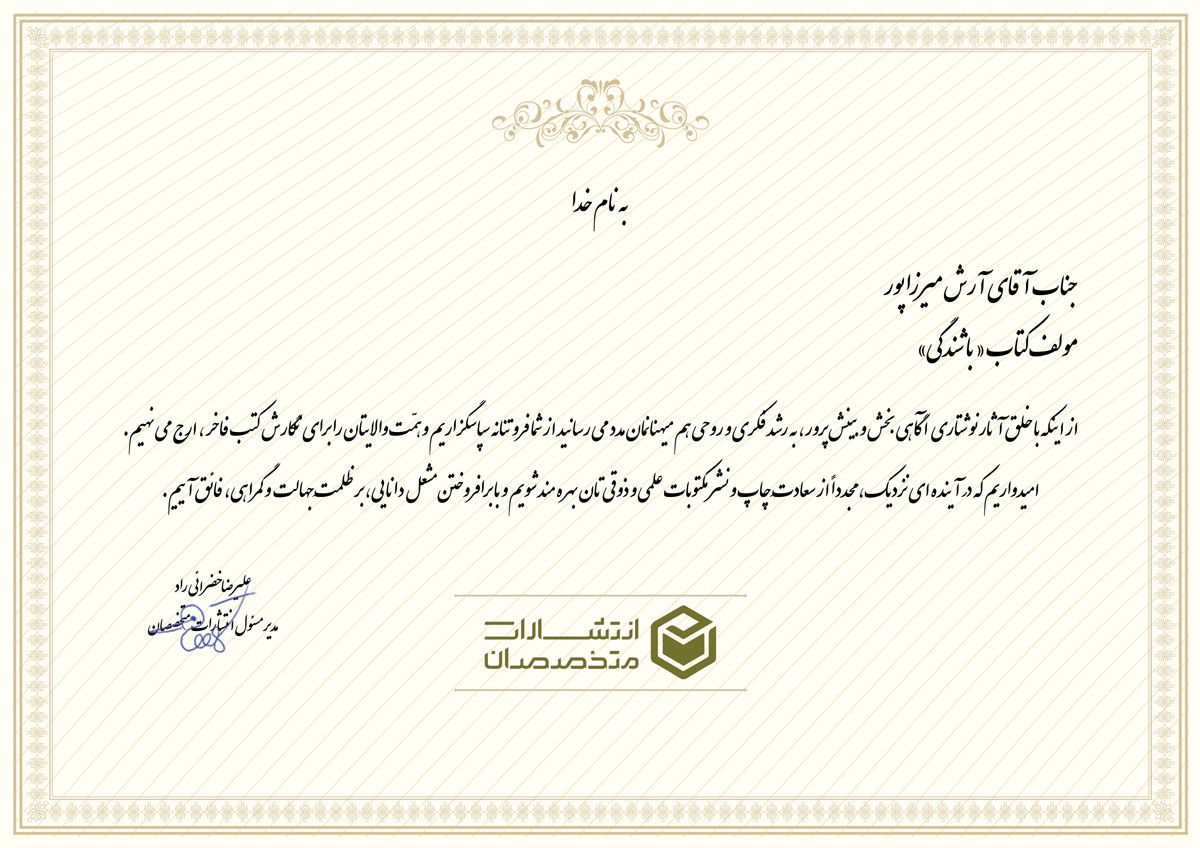 به نام خدا
جناب آقای آرش میرزاپور
مولف کتاب «باشندگی»
از اینکه با خلق آثار نوشتاری آگاهی بخش و بینش پرور، به رشد فکری و روحی هم میهنانمان مدد می رسانید از شما فروتنانه سپاسگزاریم و همّت والایتان را برای نگارش کتب فاخر، ارج می نهیم.
امیدواریم که در آینده ای نزدیک، مجدداً از سعادت چاپ و نشر مکتوبات علمی و ذوقی تان بهره مند شویم و با برافروختن مشعل دانایی، بر ظلمت جهالت و گمراهی، فائق آییم.
علیرضا خضرائی راد
مدیر مسئول انتشارات متخصصان
انتشارات
متخصصان